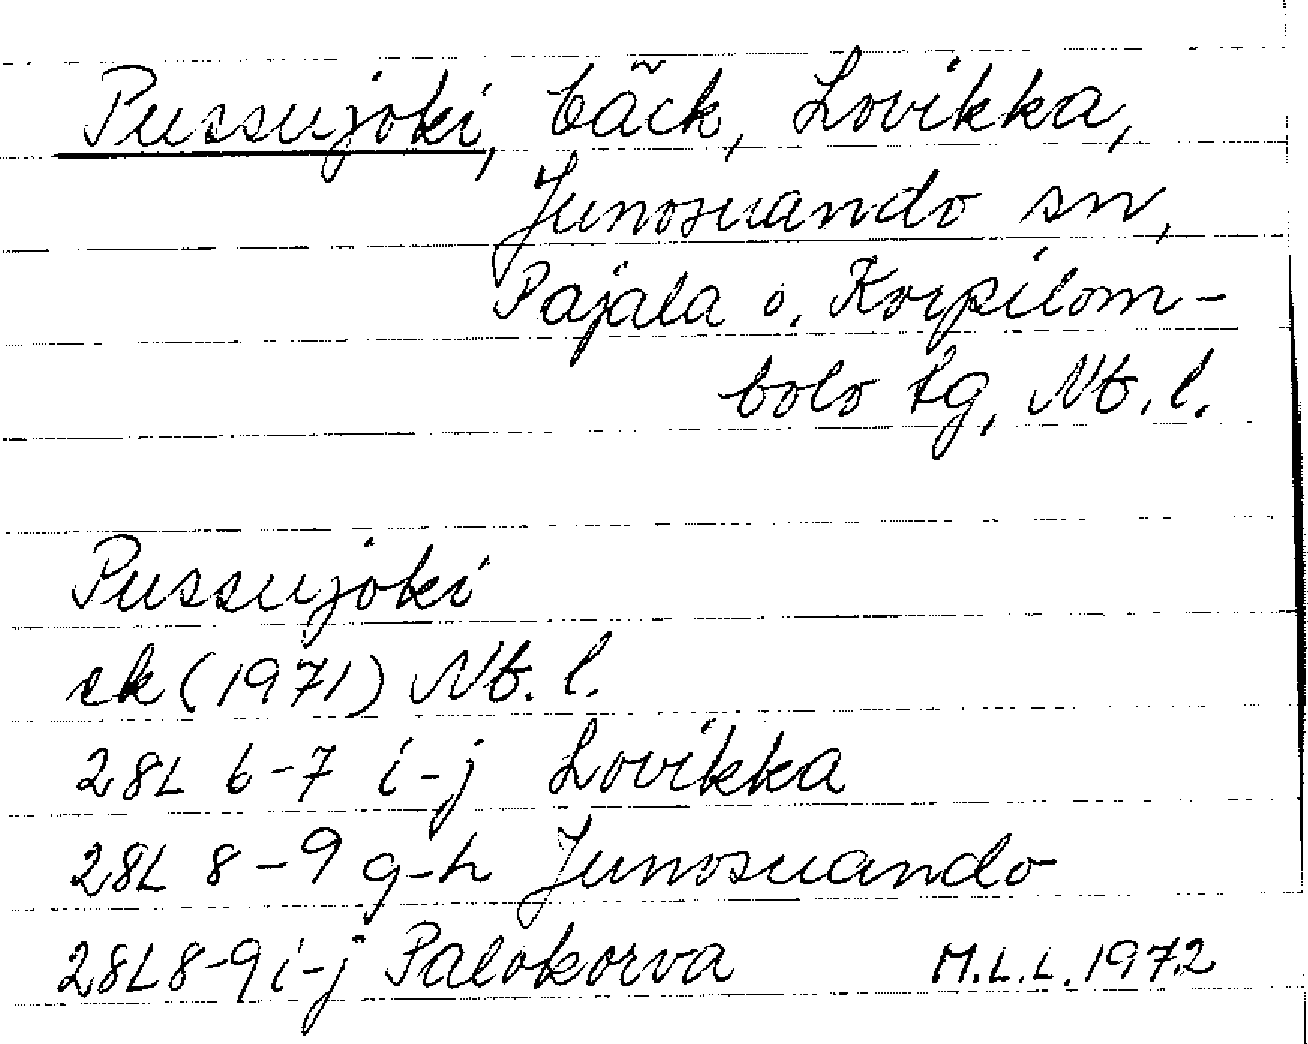 Pussujoki, bäck, Lovikka,
Junosuando sn,
Pajala o. Korpilom-
bolo tg, Nb. l.
Pussujoki
ek (1971) Nb. l.
28L 6-7 i-j Lovikka
28L 8-9 g-h Junosuando
28L 8-9 i-j Palokorva M.L.L. 1972